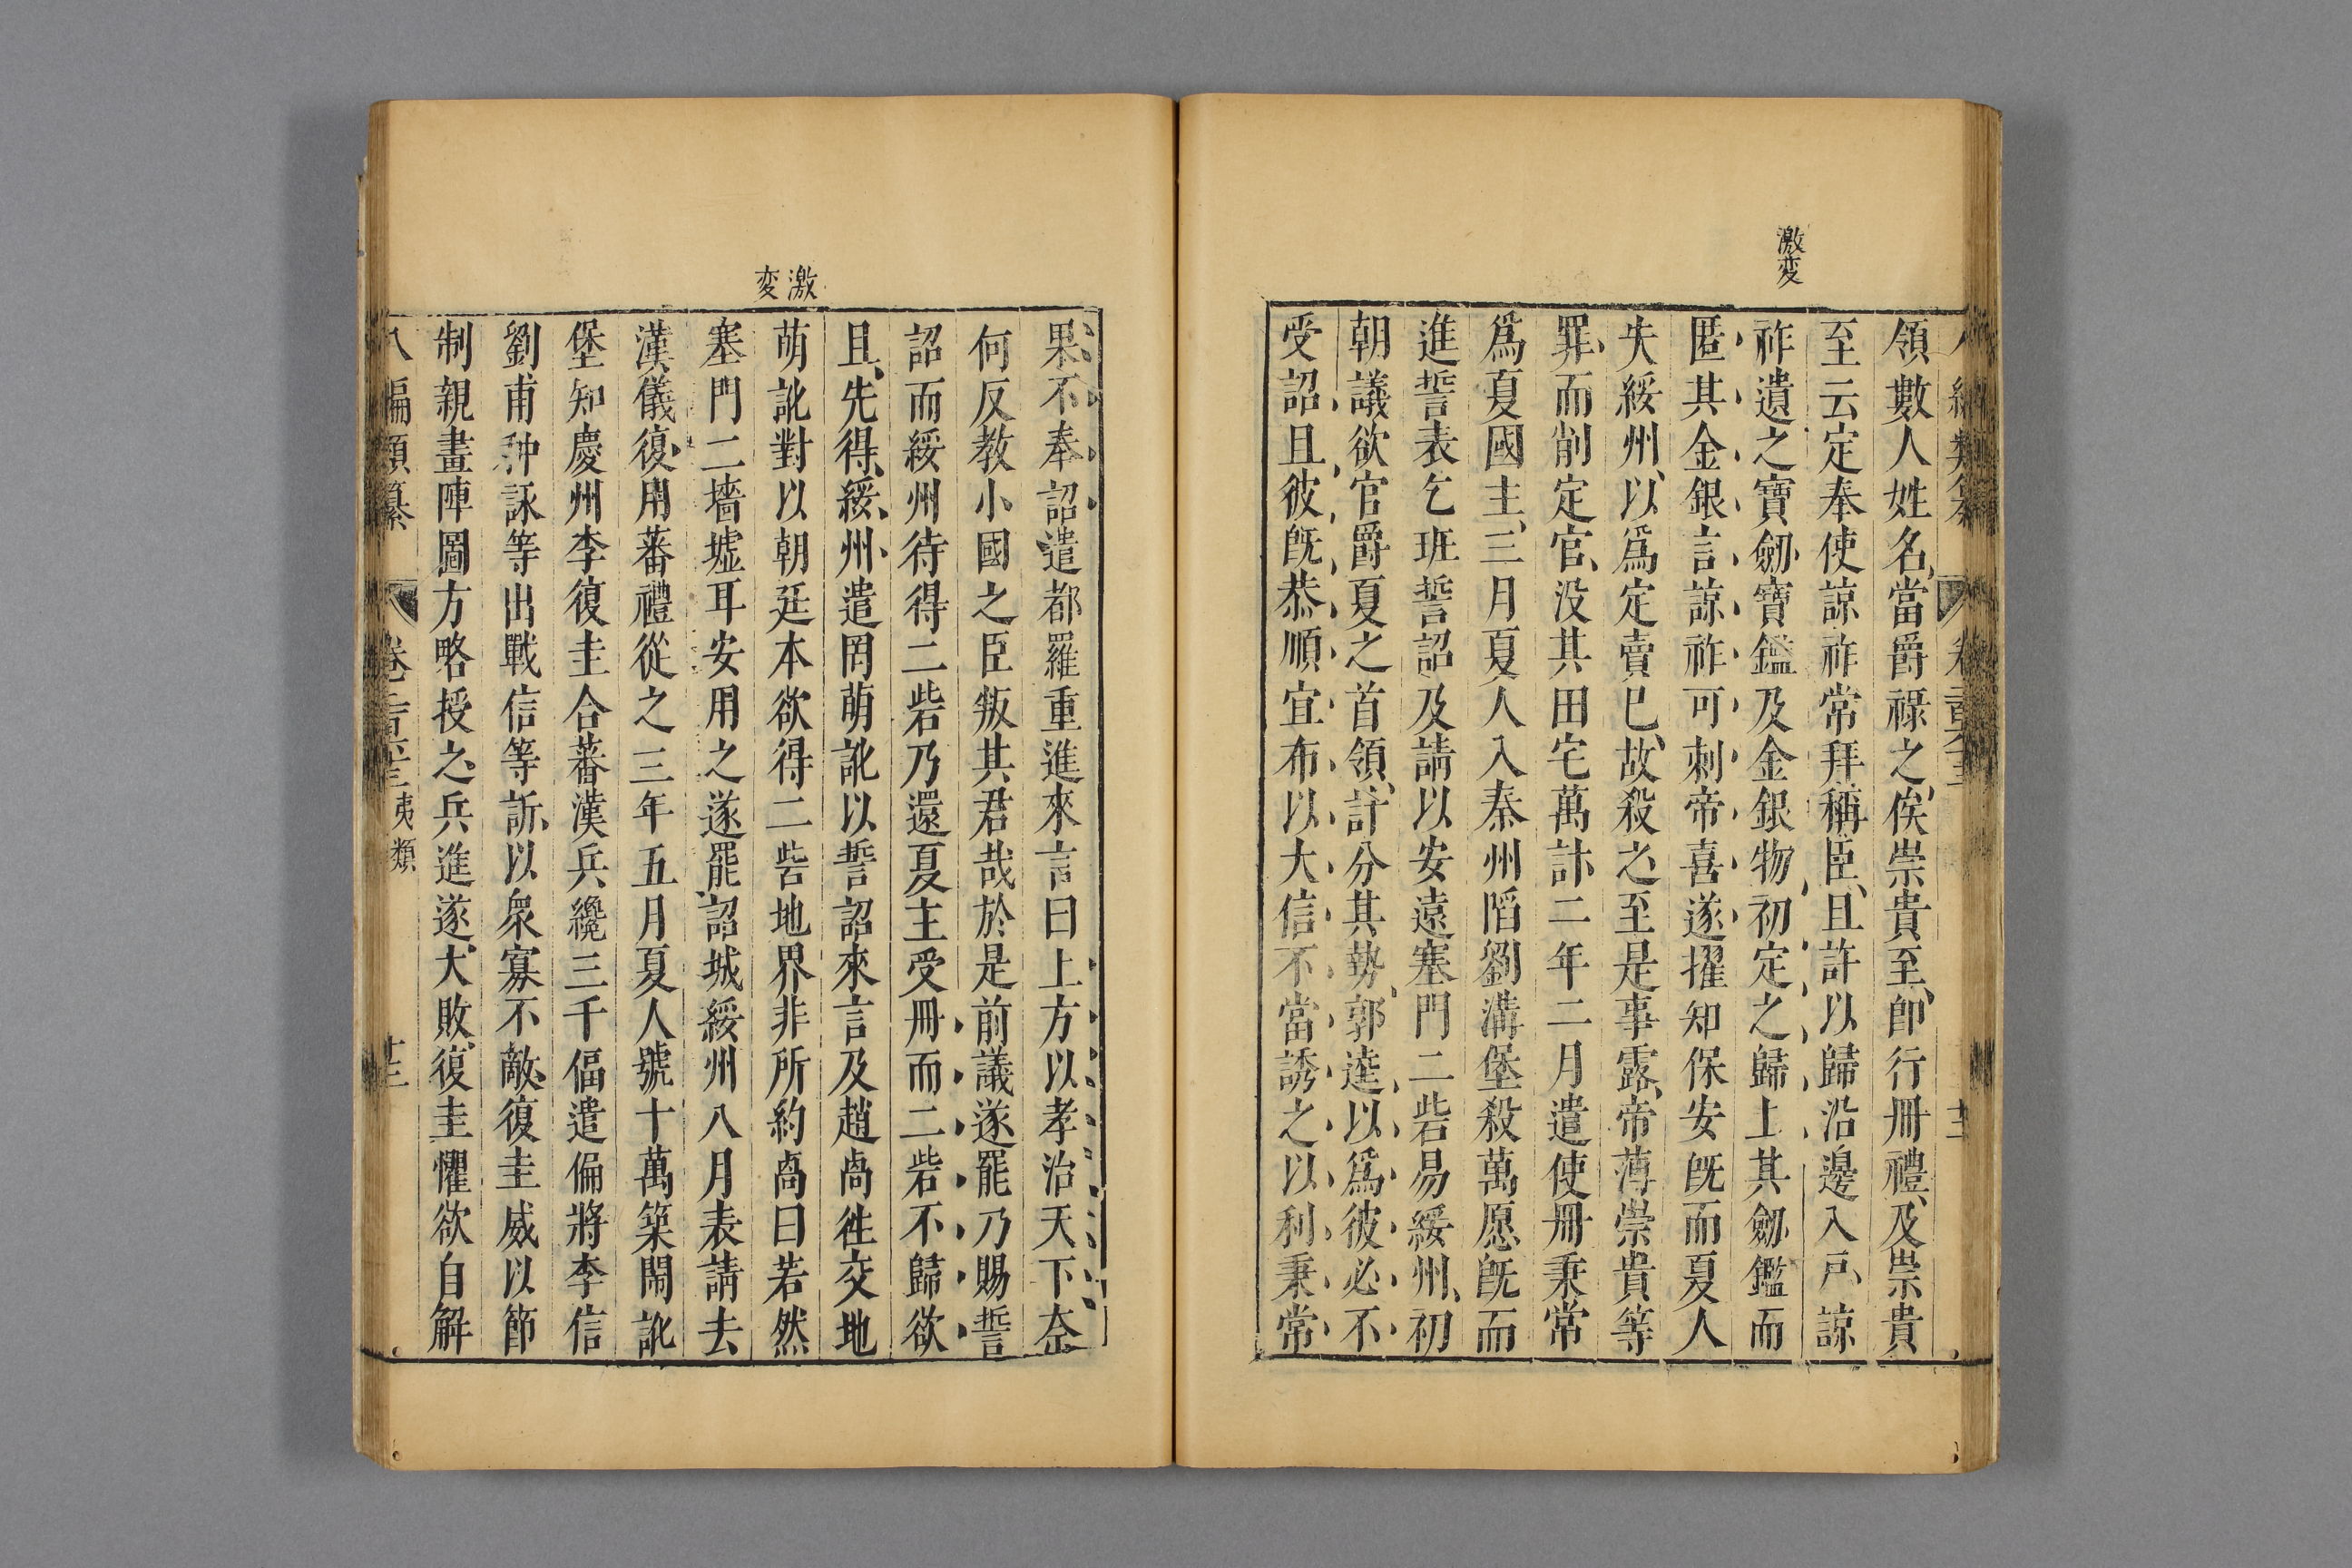 激変
領數人姓名當爵祿之俟崇貴至卽行冊禮及崇貴
至云定奉使諒祚常拜稱臣且許以歸沿邊入戸諒
祚遺之寶劒寶鑑及金銀物初定之歸上其劒鑑而
匿其金銀言諒祚可刺帝喜遂擢知保安旣而夏人
失綏州以爲定賣已故殺之至是事露帝薄崇貴等
罪而削定官没其田宅萬計二年二月遣使冊秉常
爲夏國主三月夏人入秦州陷劉溝堡殺萬愿旣而
進誓表乞班誓詔及請以安遠塞門二砦易綏州初
朝議欲官爵夏之首領計分其勢郭逵以爲彼必不
受詔且彼旣恭順宜布以大信不當誘之以利秉常
激変
果不奉詔遣都羅重進來言曰上方以孝治天下奈
何反教小國之臣叛其君哉於是前議遂罷乃賜誓
詔而綏州待得二砦乃還夏主受冊而二砦不歸欲
且先得綏州遣罔萌訛以誓詔來言及趙卨徃交地
萌訛對以朝廷本欲得二砦地界非所約卨曰若然
塞門二墻墟耳安用之遂罷詔城綏州八月表請去
漢儀復用蕃禮從之三年五月夏人號十萬築閙訛
堡知慶州李復圭合蕃漢兵纔三千偪遣偏將李信
劉甫种詠等出戰信等訴以衆寡不敵復圭威以節
制親畫陣圖方略授之兵進遂大敗復圭懼欲自解
八編類纂 夷類